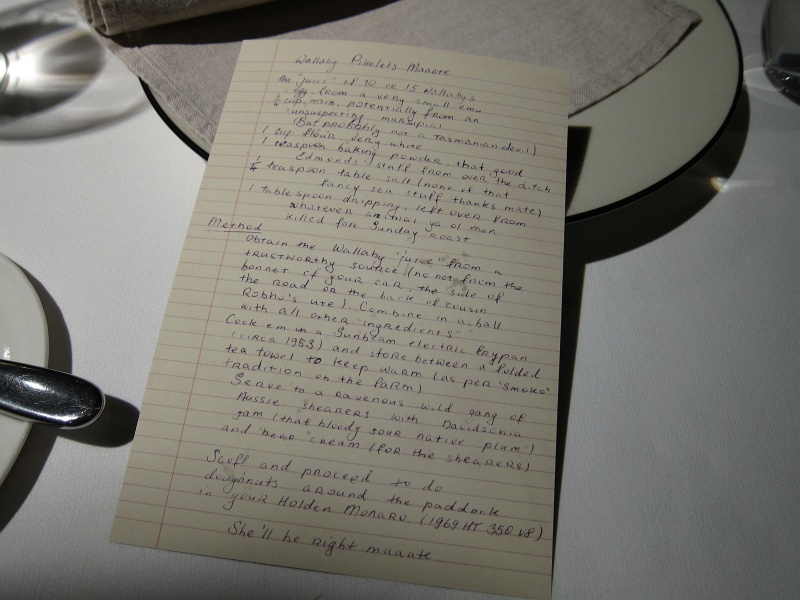 Wallaby Pikelets Maaate
the "juice" of 10 or 15 Wallabys
1 egg, from a very small emu
3/4 cup, milk, potentially from an
unsuspecting, marsupial
(But probably not a Tasmanian devil)
1 cup flour, very white
1 teaspoon baking powder, that good
Edmonds stuff from over the ditch
1/4 teaspoon table salt (none of that
fancy sea stuff thanks mate)
1 tablespoon dripping, left over from
whatever animal ya ol man
killed for Sunday roast
Method
Obtain the Wallaby "juice" from a
trustworthy source (no not from the
bonnet of your car, the side of
the road or the back of cousin
Robho's ute). Combine in a ball
with all other "ingredients"
Cook em in a Sunbeam electric frypan
(circa 1953) and store between a folded
tea towel to keep warm (as per "smoko"
tradition on the farm)
Serve to a ravenous wild gang of
Aussie shearers with Davidsonia
jam (that bloody sour native plum")
and beer cream (for the shearers)
Scoff and proceed to do
doughnuts around the paddock
in your Holden Monaro. (1969 HT 350 V8)
She'll be right maaate